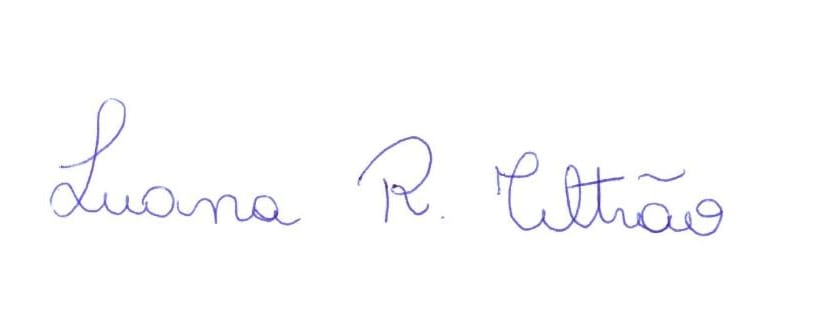 Luana R. Teltrão